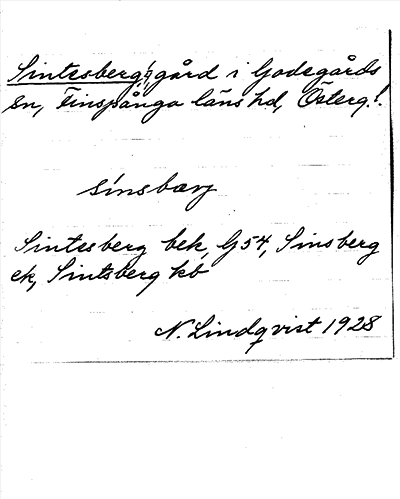 Sintesberg, gård i Godegårds
sn, Finspånga läns hd, Österg.
sínsbærj
Sintesberg bek, G54, Sinsberg
ek, Sintsberg kb
N. Lindqvist 1928